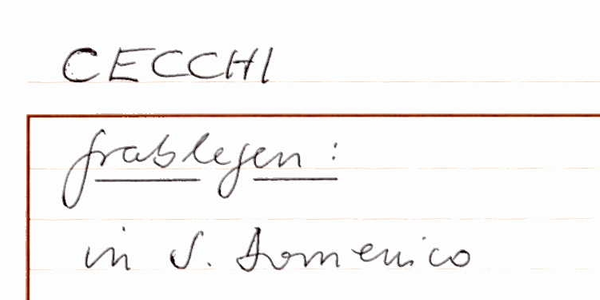 CECCHI
Grablegen:
in S. Domenico